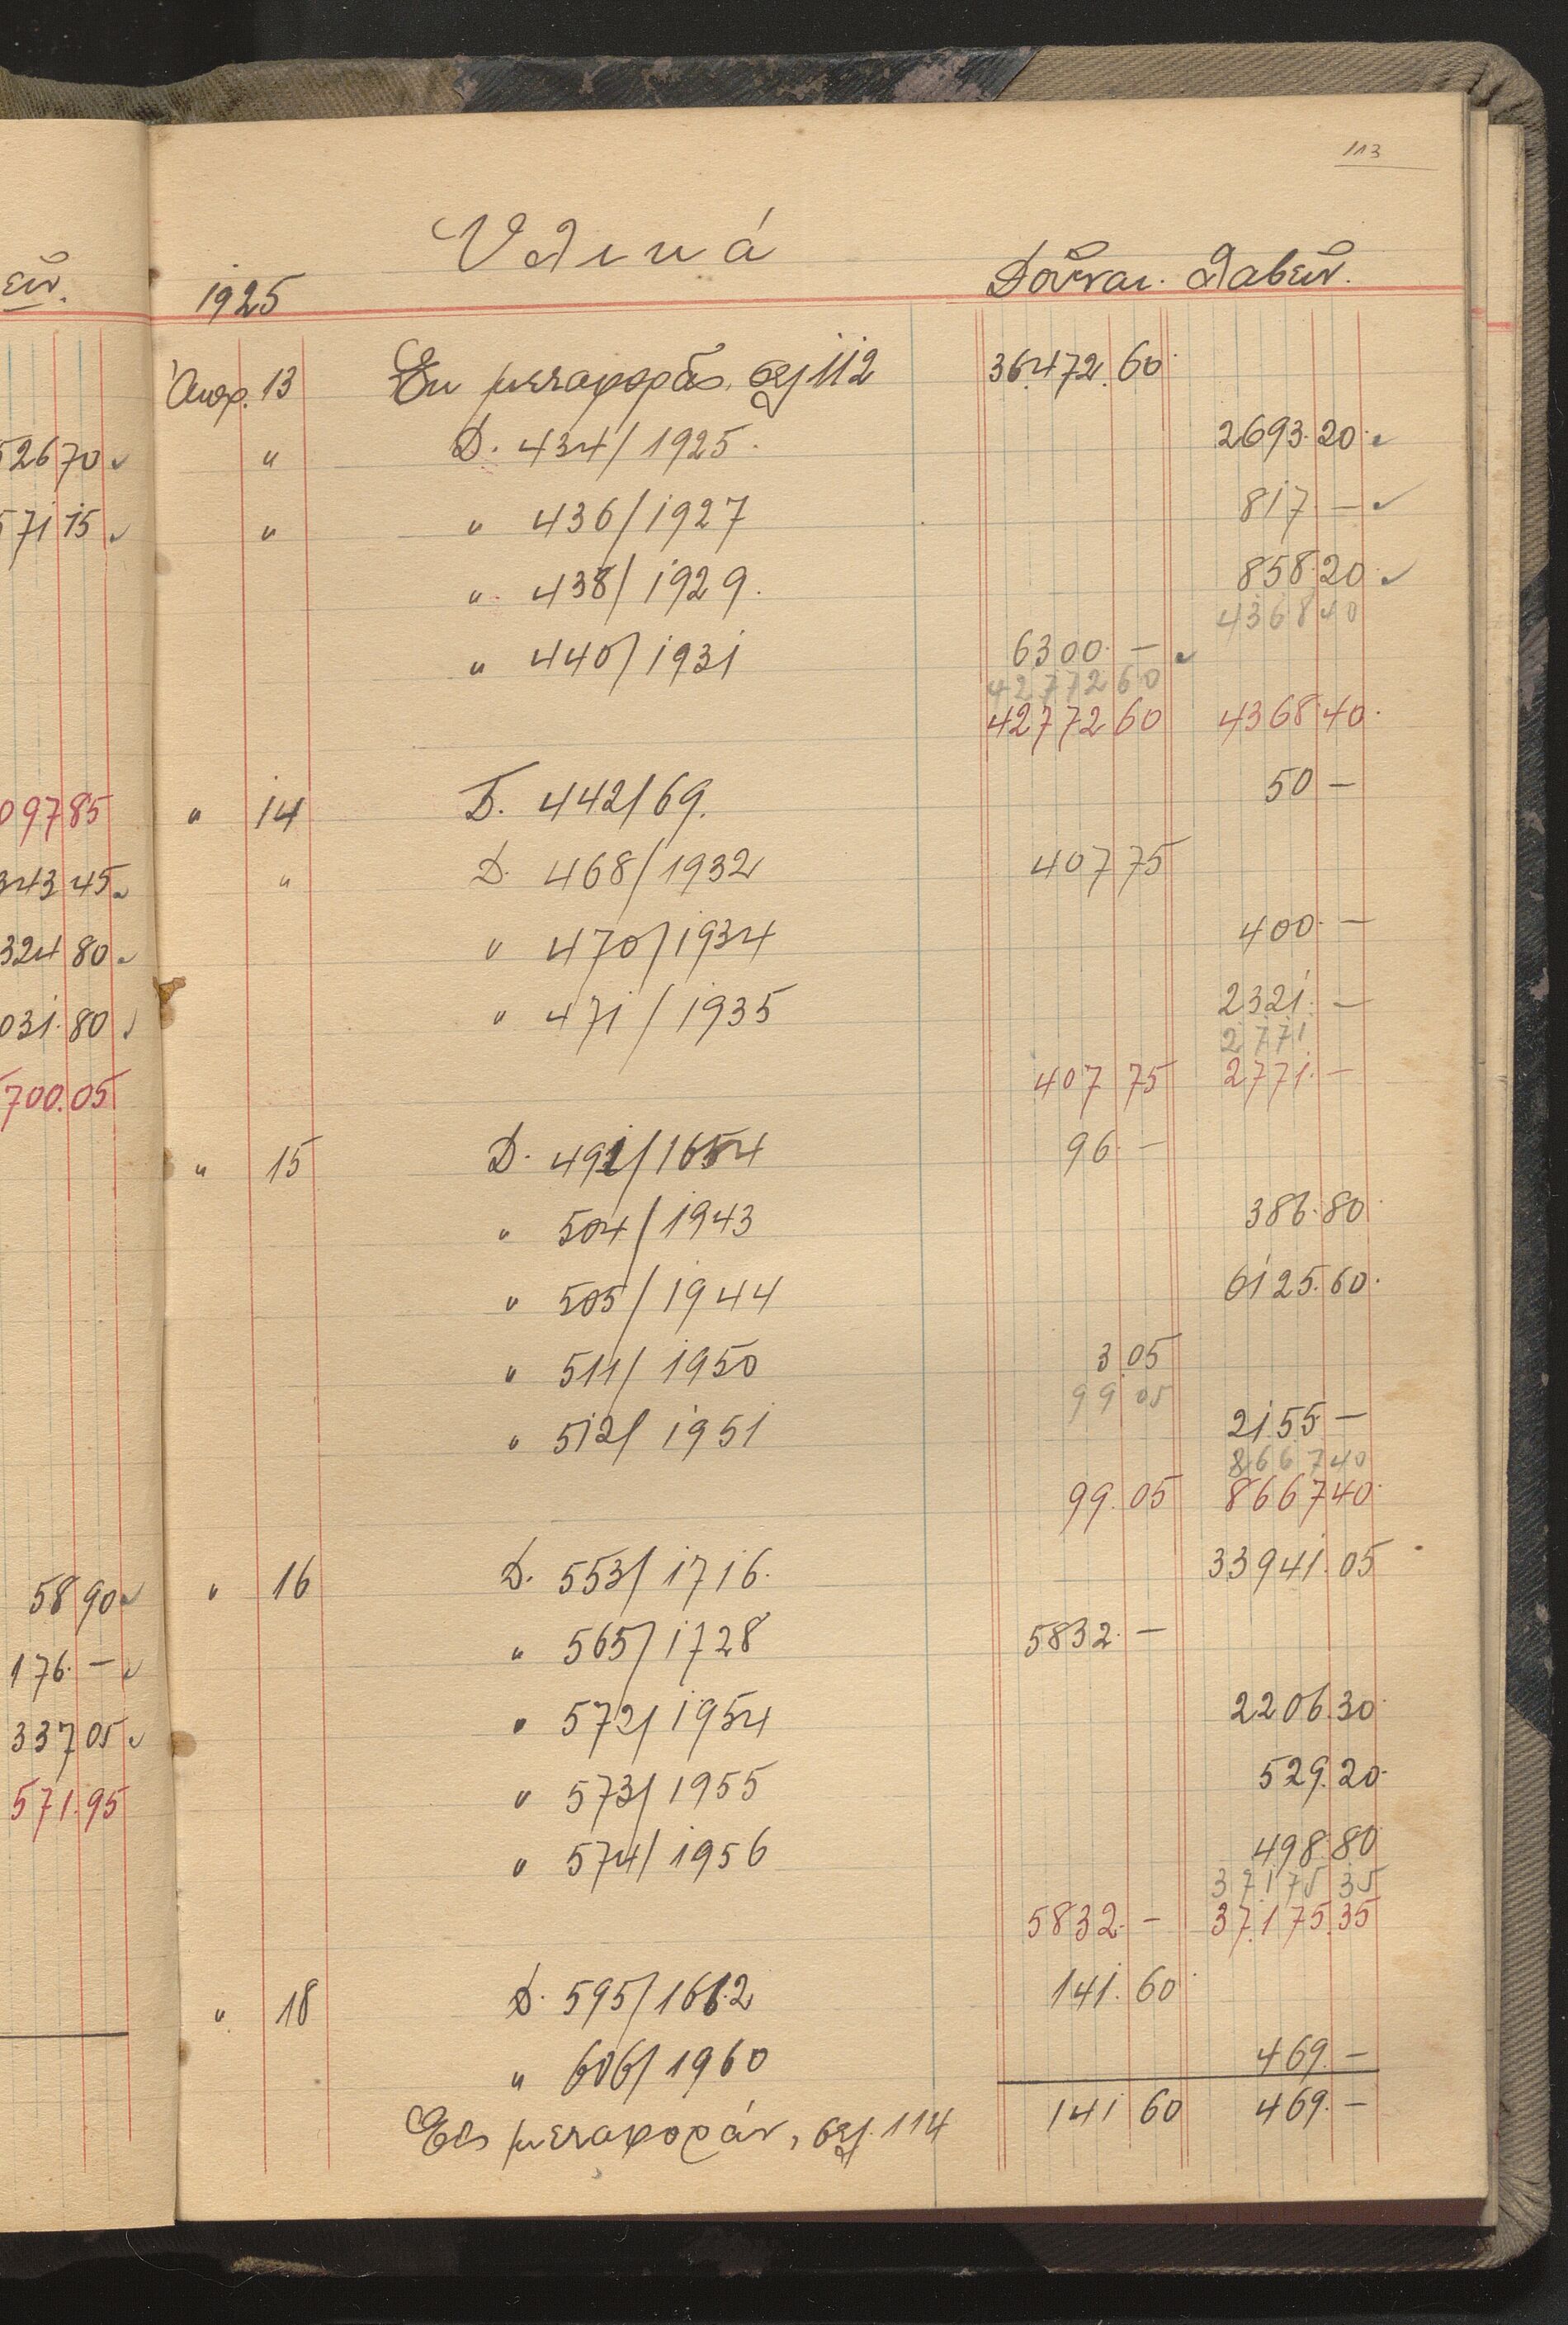 113
Υλικά
1925 Δοῦναι. Λαβεῖν.
Ἀπρ. 13 Ἐκ μεταφορᾶς, σελ 112 36.472.60
" Δ. 434/1925. 2693.20
" " 436/1927 817.—
" 438/1929. 858.20
4368 40
" 440/1931 6300.—
42772 60
42772 60 4368.40.
" 14 Τ. 442/69. 50 —
" Δ. 468/1932 407 75
" 470/1934 400.—
" 471/1935 2321.—
2771
407 75 2771.—
" 15 Δ. 491/1654 96.—
" 504/1943 386.80
" 505/1944 6125.60.
" 511/1950 3.05
99 05
" 512/1951 2155 —
8667 40
99.05 8667 40.
" 16 Δ. 553/1716. 33941.05
" 565/1728 5832.—
" 572/1954 2206.30
" 573/1955 529.20
" 574/1956 498.80
37175 35
5832.— 37.175.35
" 18 Δ. 595/1662 141.60
" 606/1960 469.—
Εἰς μεταφοράν, σελ. 114 141 60 469.—
εῖν.
526 70
571 15
097 85
343 45
324 80
031.80
700.05
58 90
176.—
337 05
571.95